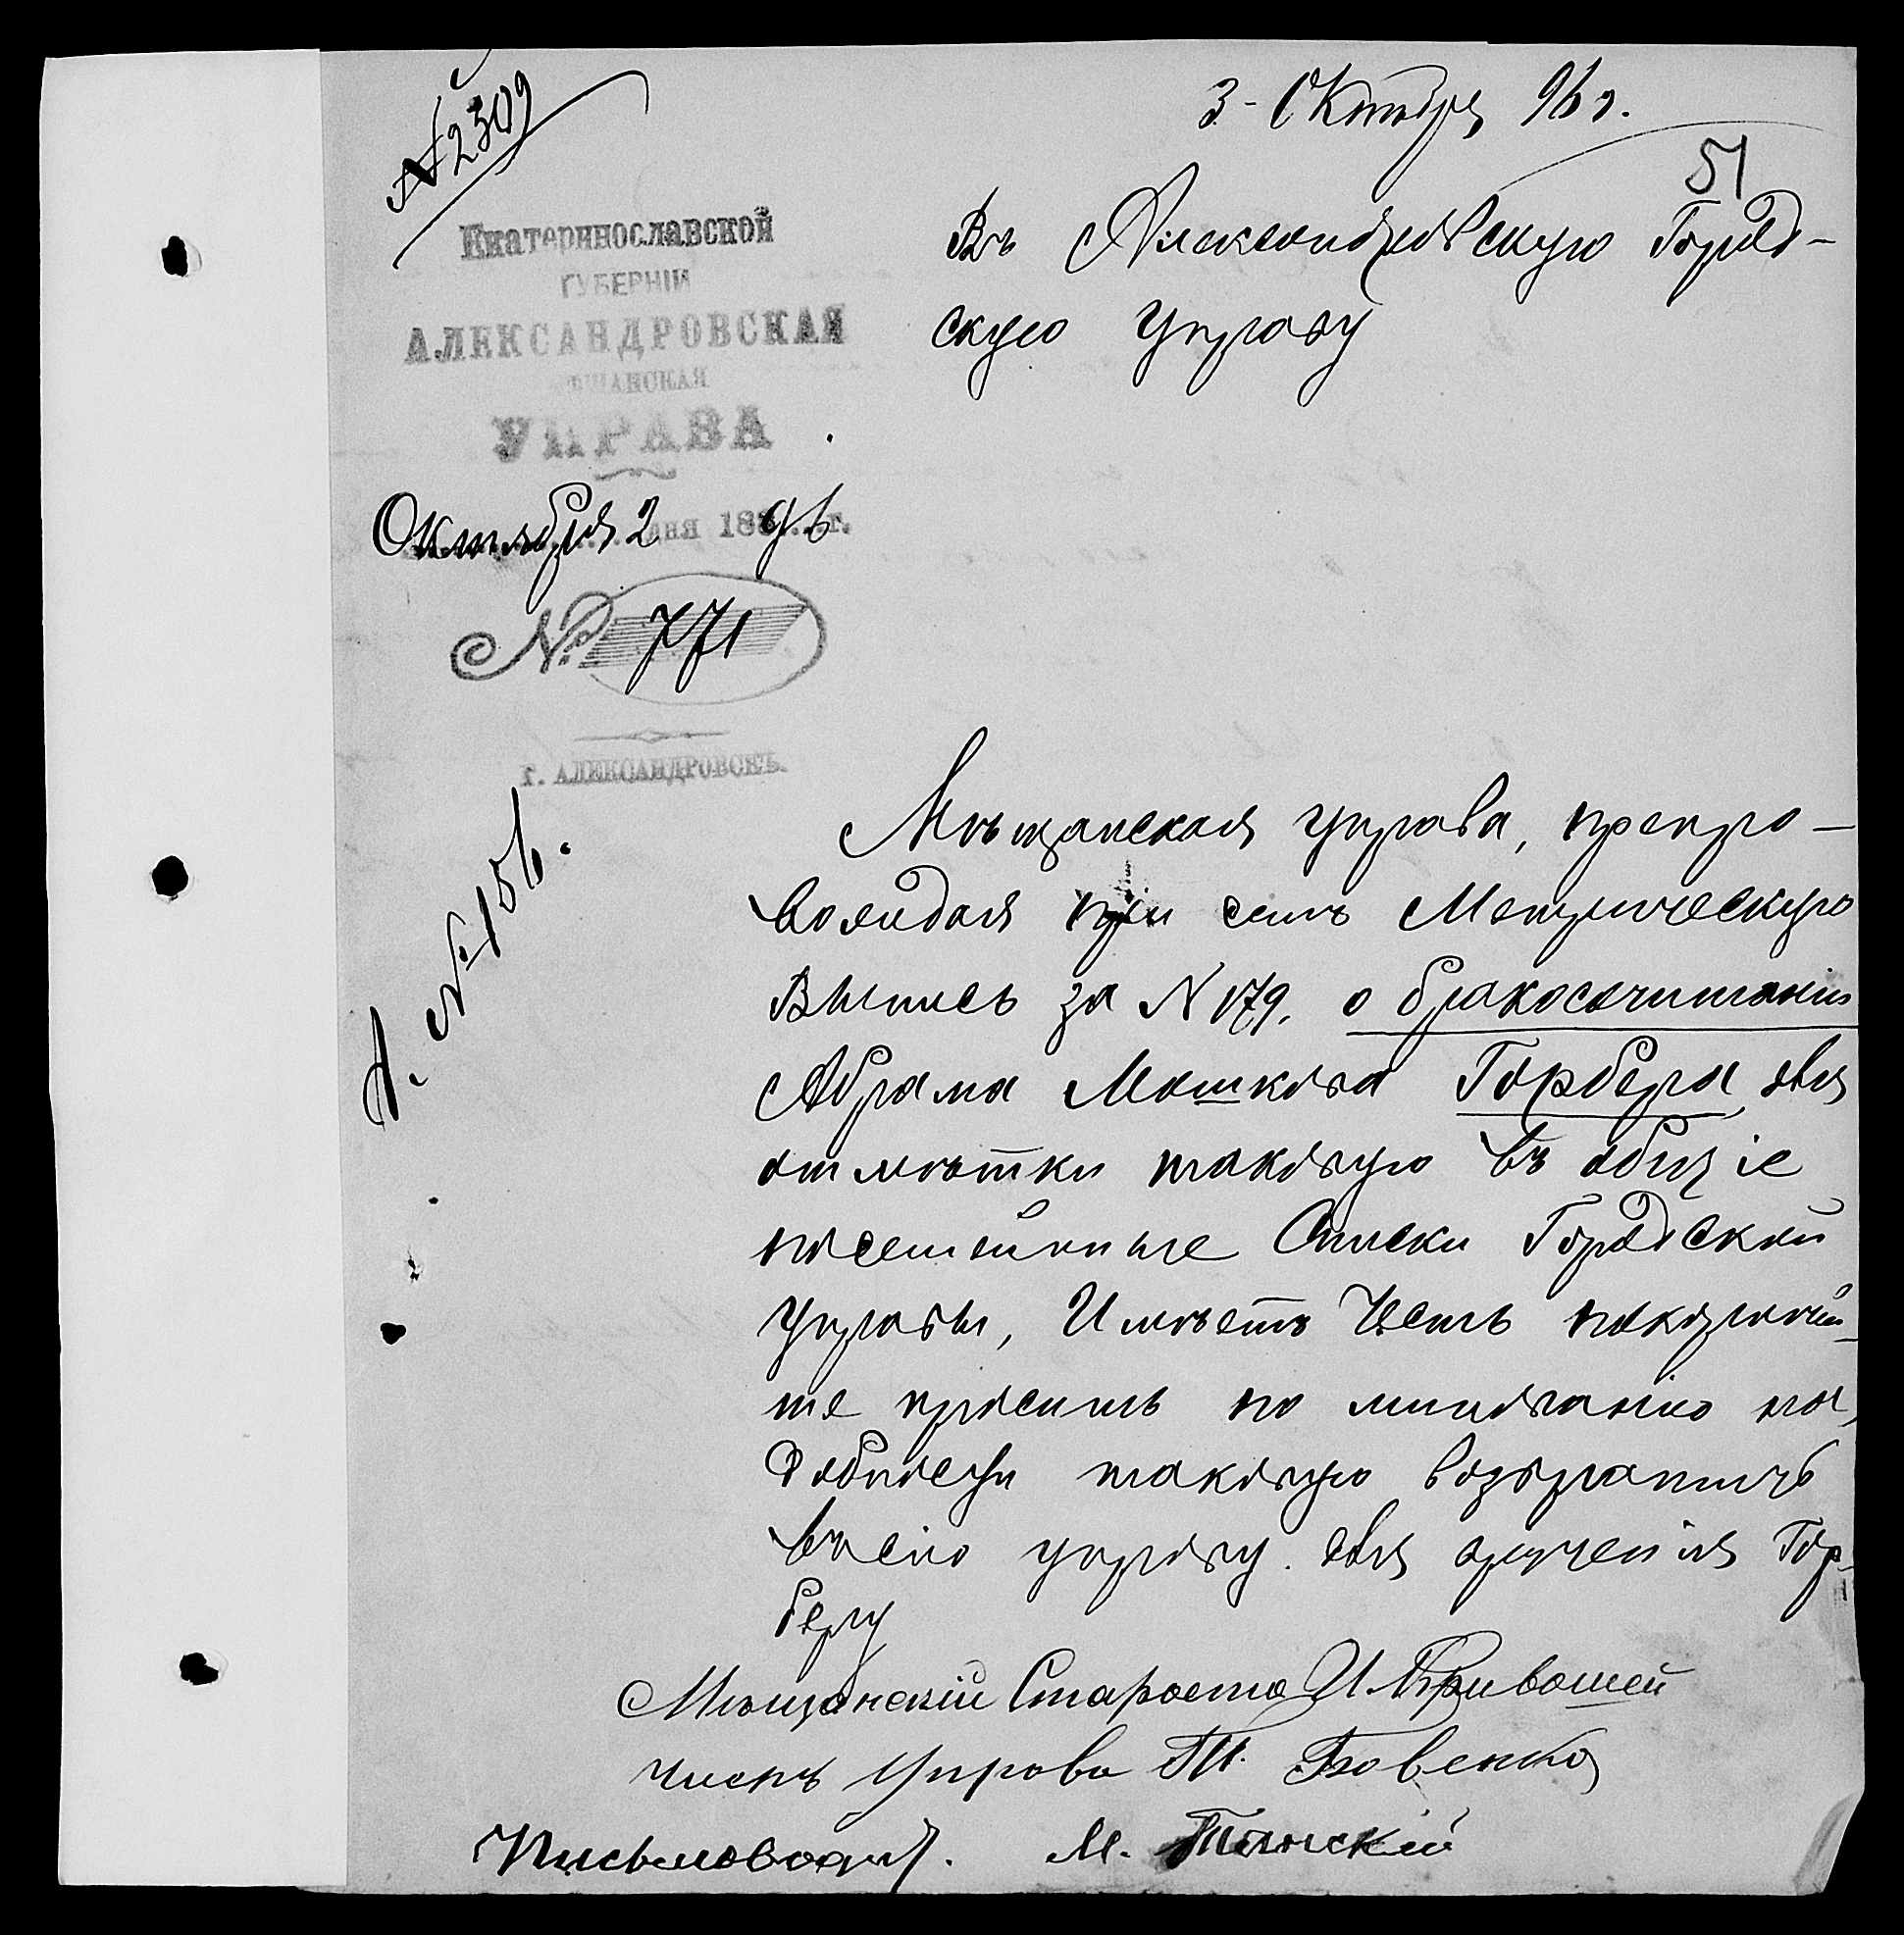 № 2309
3 - Октября 96 г.
51
Екатеринославской
ГУБЕРНІИ
АЛЕКСАНДРОВСКАЯ
МѢЩАНСКАЯ
УПРАВА
Октября 2 дня 1896 г.
№ 771
г. АЛЕКСАНДРОВСКЪ.
Въ Александровскую Город-
скую Управу
№ 156.
Мѣщанская управа, препро-
вождая при семъ Метрическую
Выпись за N 179, о бракосочитаніи
Абрама Мошкова Горбера, для
отмѣтки таковую въ общіе
посемейные Списки Городской
Управы, Имѣетъ Честь покорнѣй-
ше просить по минованію на-
добности таковую возвратить
въ сію управу. для врученія Гор-
беру
Мѣщанскій Староста И. Кривошей
Членъ Управы П. Бовенко
Письмоводит. М.